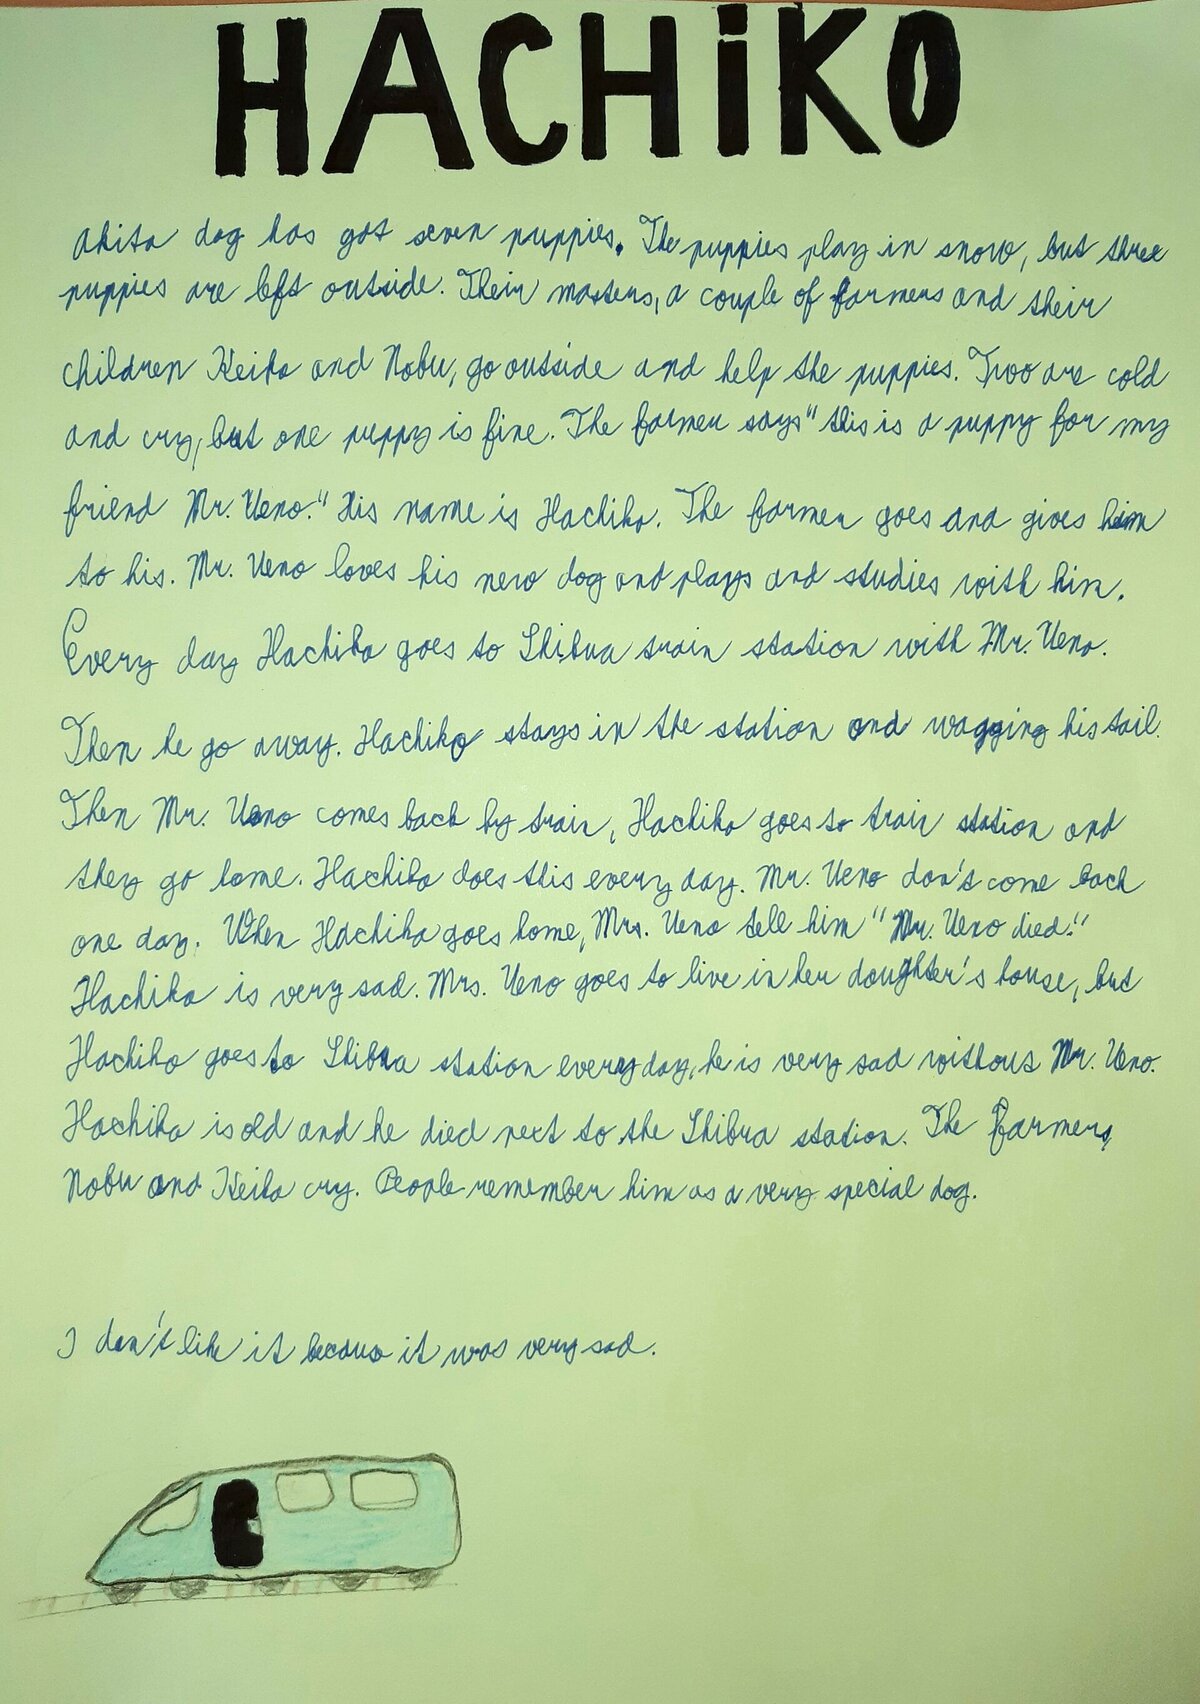 HACHiKO
Akita dog has got seven puppies. The puppies play in snow, but three
puppies are left outside. Their masters, a couple of farmers and their
children Keiko and Nobu, go outside and help the puppies. Two are cold
and cry, but one puppy is fine. The farmer says "this is a puppy for my
friend Mr. Ueno." His name is Hachiko. The farmer goes and gives him
to his. Mr. Ueno loves his new dog and plays and studies with him.
Every day Hachiko goes to Shibua train station with Mr. Ueno.
Then he go away. Hachiko stays in the station and wagging his tail.
Then Mr. Ueno comes back by train, Hachiko goes to train station and
they go home. Hachiko does this every day. Mr. Ueno don't come back
one day. When Hachiko goes home, Mrs. Ueno tell him "Mr. Ueno died."
Hachiko is very sad. Mrs. Ueno goes to live in her doughter's house, but
Hachiko goes to Shibua station every day, he is very sad without Mr. Ueno.
Hachiko is old and he died next to the Shibua station. The farmers,
Nobu and Keiko cry. People remember him as a very special dog.
I don't like it becaus it was very sad.